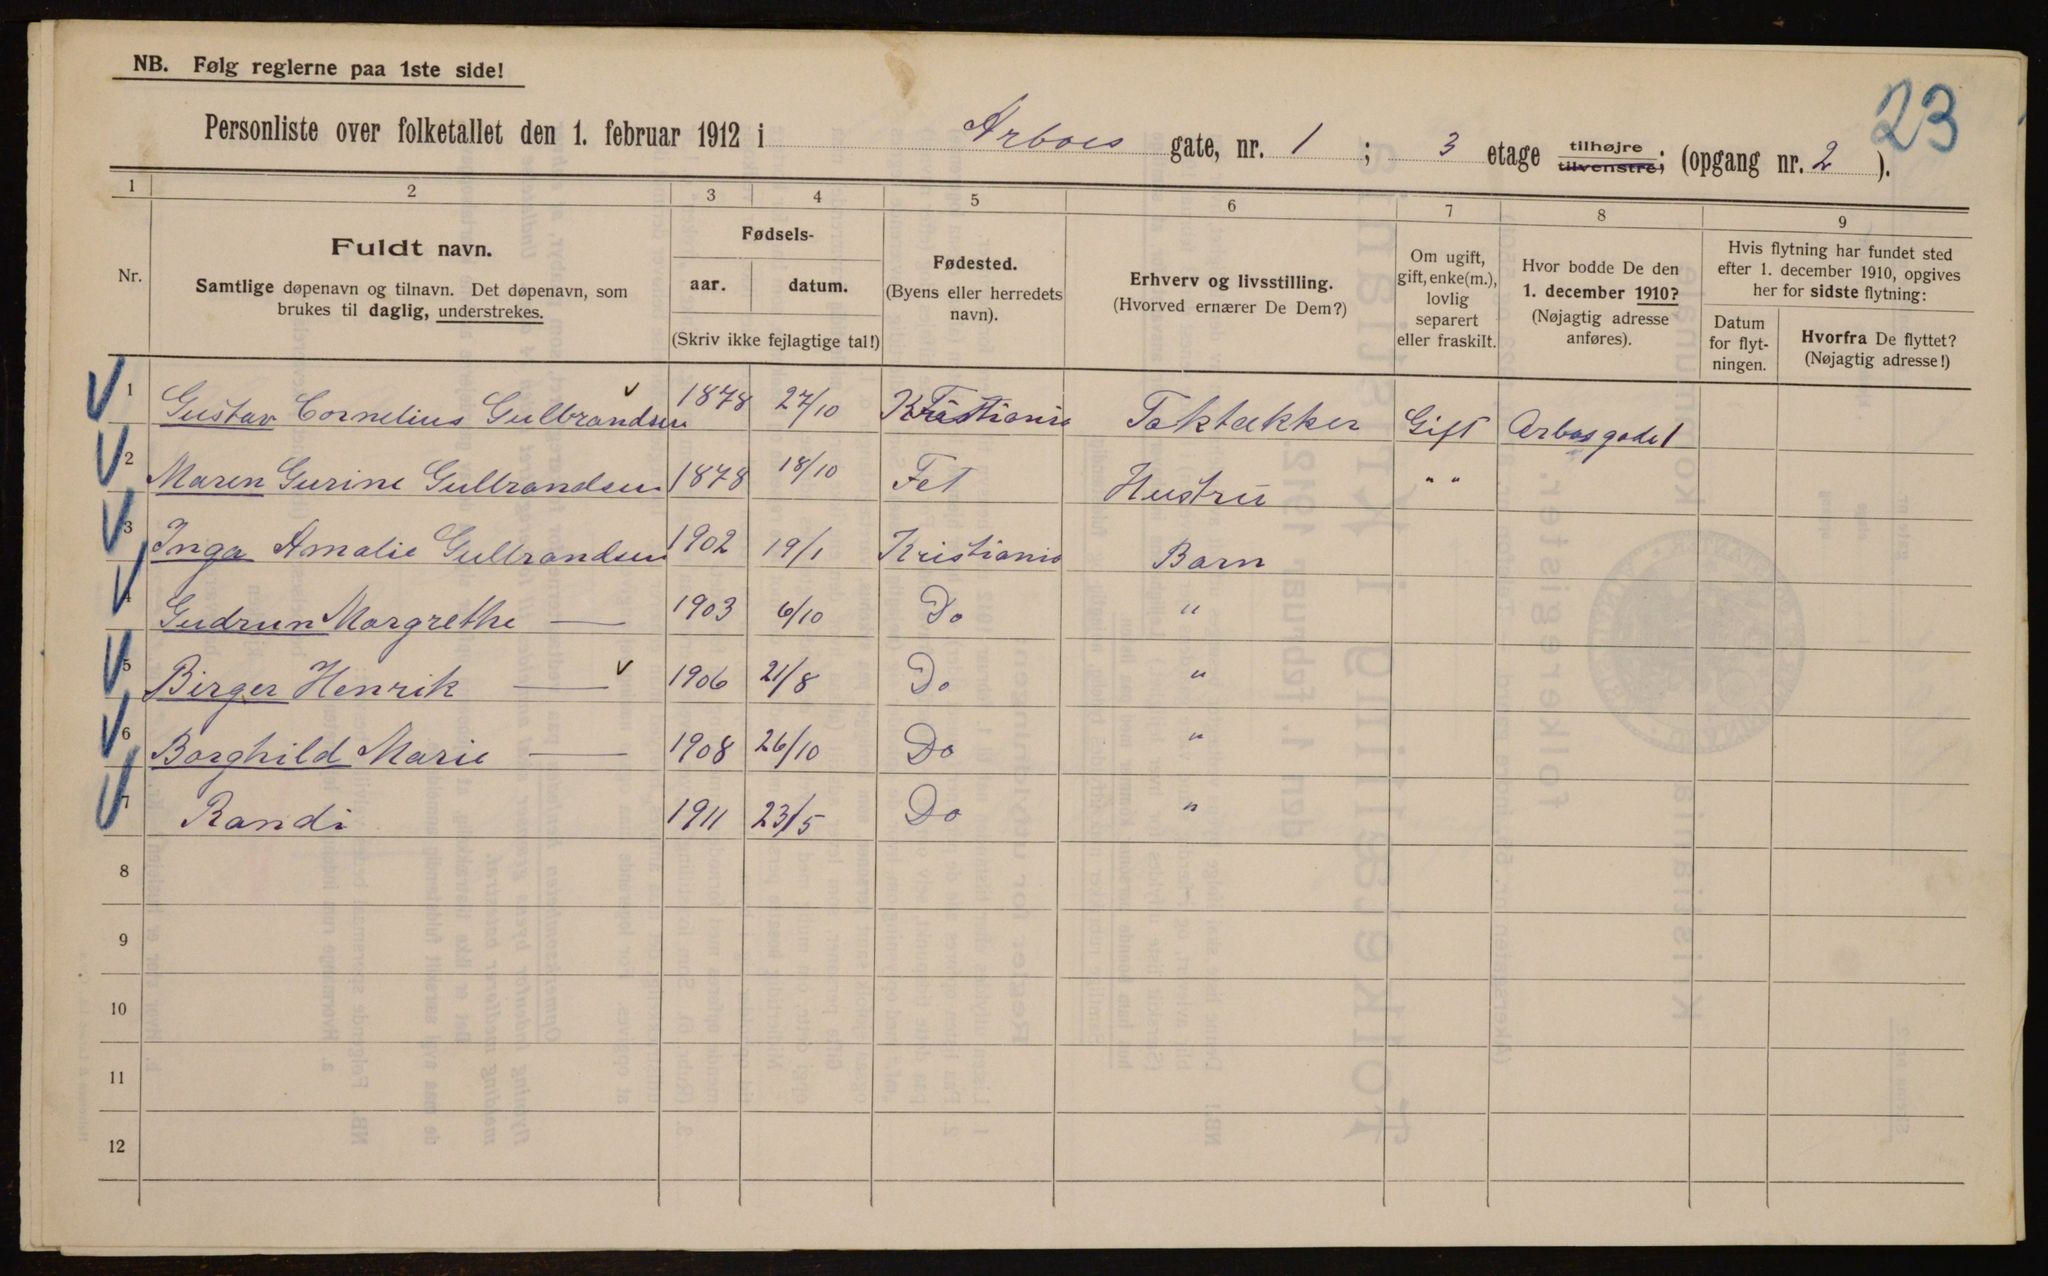 NB. Følg reglerne paa 1ste side!
23
Personliste over folketallet den 1. februar 1912 i Arboes gate, nr. 1 ; 3 etage tilhøjre tilvenstre; (opgang nr. 2 ).
1 2 3 4 5 6 7 8 9
Nr.
Fuldt navn.
Samtlige døpenavn og tilnavn. Det døpenavn, som
brukes til daglig, understrekes.
Fødsels-
aar. datum.
(Skriv ikke fejlagtige tal!)
Fødested.
(Byens eller herredets
navn).
Erhverv og livsstilling.
(Hvorved ernærer De Dem?)
Om ugift,
gift, enke(m.),
lovlig
separert
eller fraskilt.
Hvor bodde De den
1. december 1910?
(Nøjagtig adresse
anføres).
Hvis flytning har fundet sted
efter 1. december 1910, opgives
her for sidste flytning:
Datum
for flyt-
ningen.
Hvorfra De flyttet?
(Nøjagtig adresse!)
1 Gustav Cornelius Gulbrandsen 1878 27/10 Kristiania Taktækker Gift Arbosgade 1
2 Maren Gurine Gulbrandsen 1878 18/10 Fet Hustru " "
3 Inga Amalie Gulbrandsen 1902 19/1 Kristiania Barn
4 Gudrun Margrethe — 1903 6/10 Do "
5 Birger Henrik — 1906 21/8 Do "
6 Borghild Marie — 1908 26/10 Do "
7 Randi 1911 23/5 Do "
8
9
10
11
12